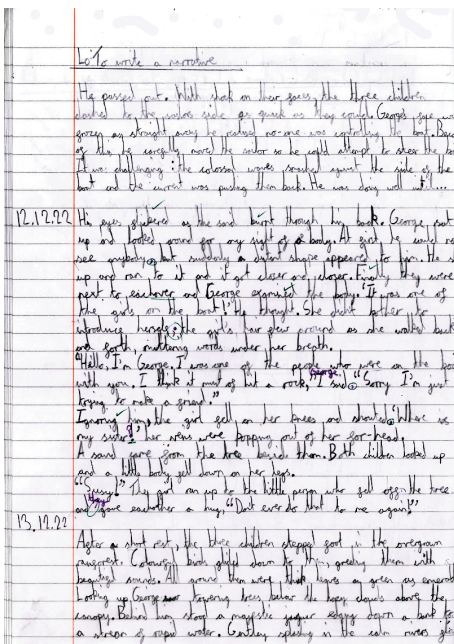 LO: To write a narrative
He passed out. With shok on their faces, the three children
dashed to the sailors side as quick as they could. Georges face was
frozen as straight away he realised no-one was controlling the boat. Because
of this he carefully moved the sailor so he could attempt to steer the boat
It was challenging: the colossal waves smashed against the side of the
boat and the current was pushing them back. He was doing well until....
12.12.22 His eyes flickered as the sand burnt through his back. George sat
up and looked around for any sight of a body. At first he could not
see anybody, but suddenly a distant shape appeared to him. He s
up and ran to it and it got closer and closer. Finally they were
next to eachover and George examined the body. "It was one of
the girls on the boat!" He thought. She didn't bother to
introduce herself; the girl's hair flew around as she walked back
and forth, muttering words under her breath.
"Hello, I'm George. I was one of the people who were on the boat
with you. I think it must of hit a rock," George said. "Sorry I'm just
trying to make a friend."
Ignoring him, the girl fell on her knees and shouted, "Where is
my sister?" her veins were popping out of her for-head.
A sand came from the tree beside them. Both children looked up
and a little body fell down on her legs.
"Sussy!" They girl ran up to the little person who fell off the tree
and gave eachother a hug. "Don't ever do that to me again!"
13.12.22
After a short rest, the three children stepped foot in the overgrown
rainforest. Colourful birds glided down to them, greeting them with
beautiful sounds. All around them were thick leaves as green as emeralds
Looking up, George saw towering trees below the clouds above the
canopy. Behind him stood a majestic jaguar edging down a bank to
a stream of water. Gently splashing in the calm rivers